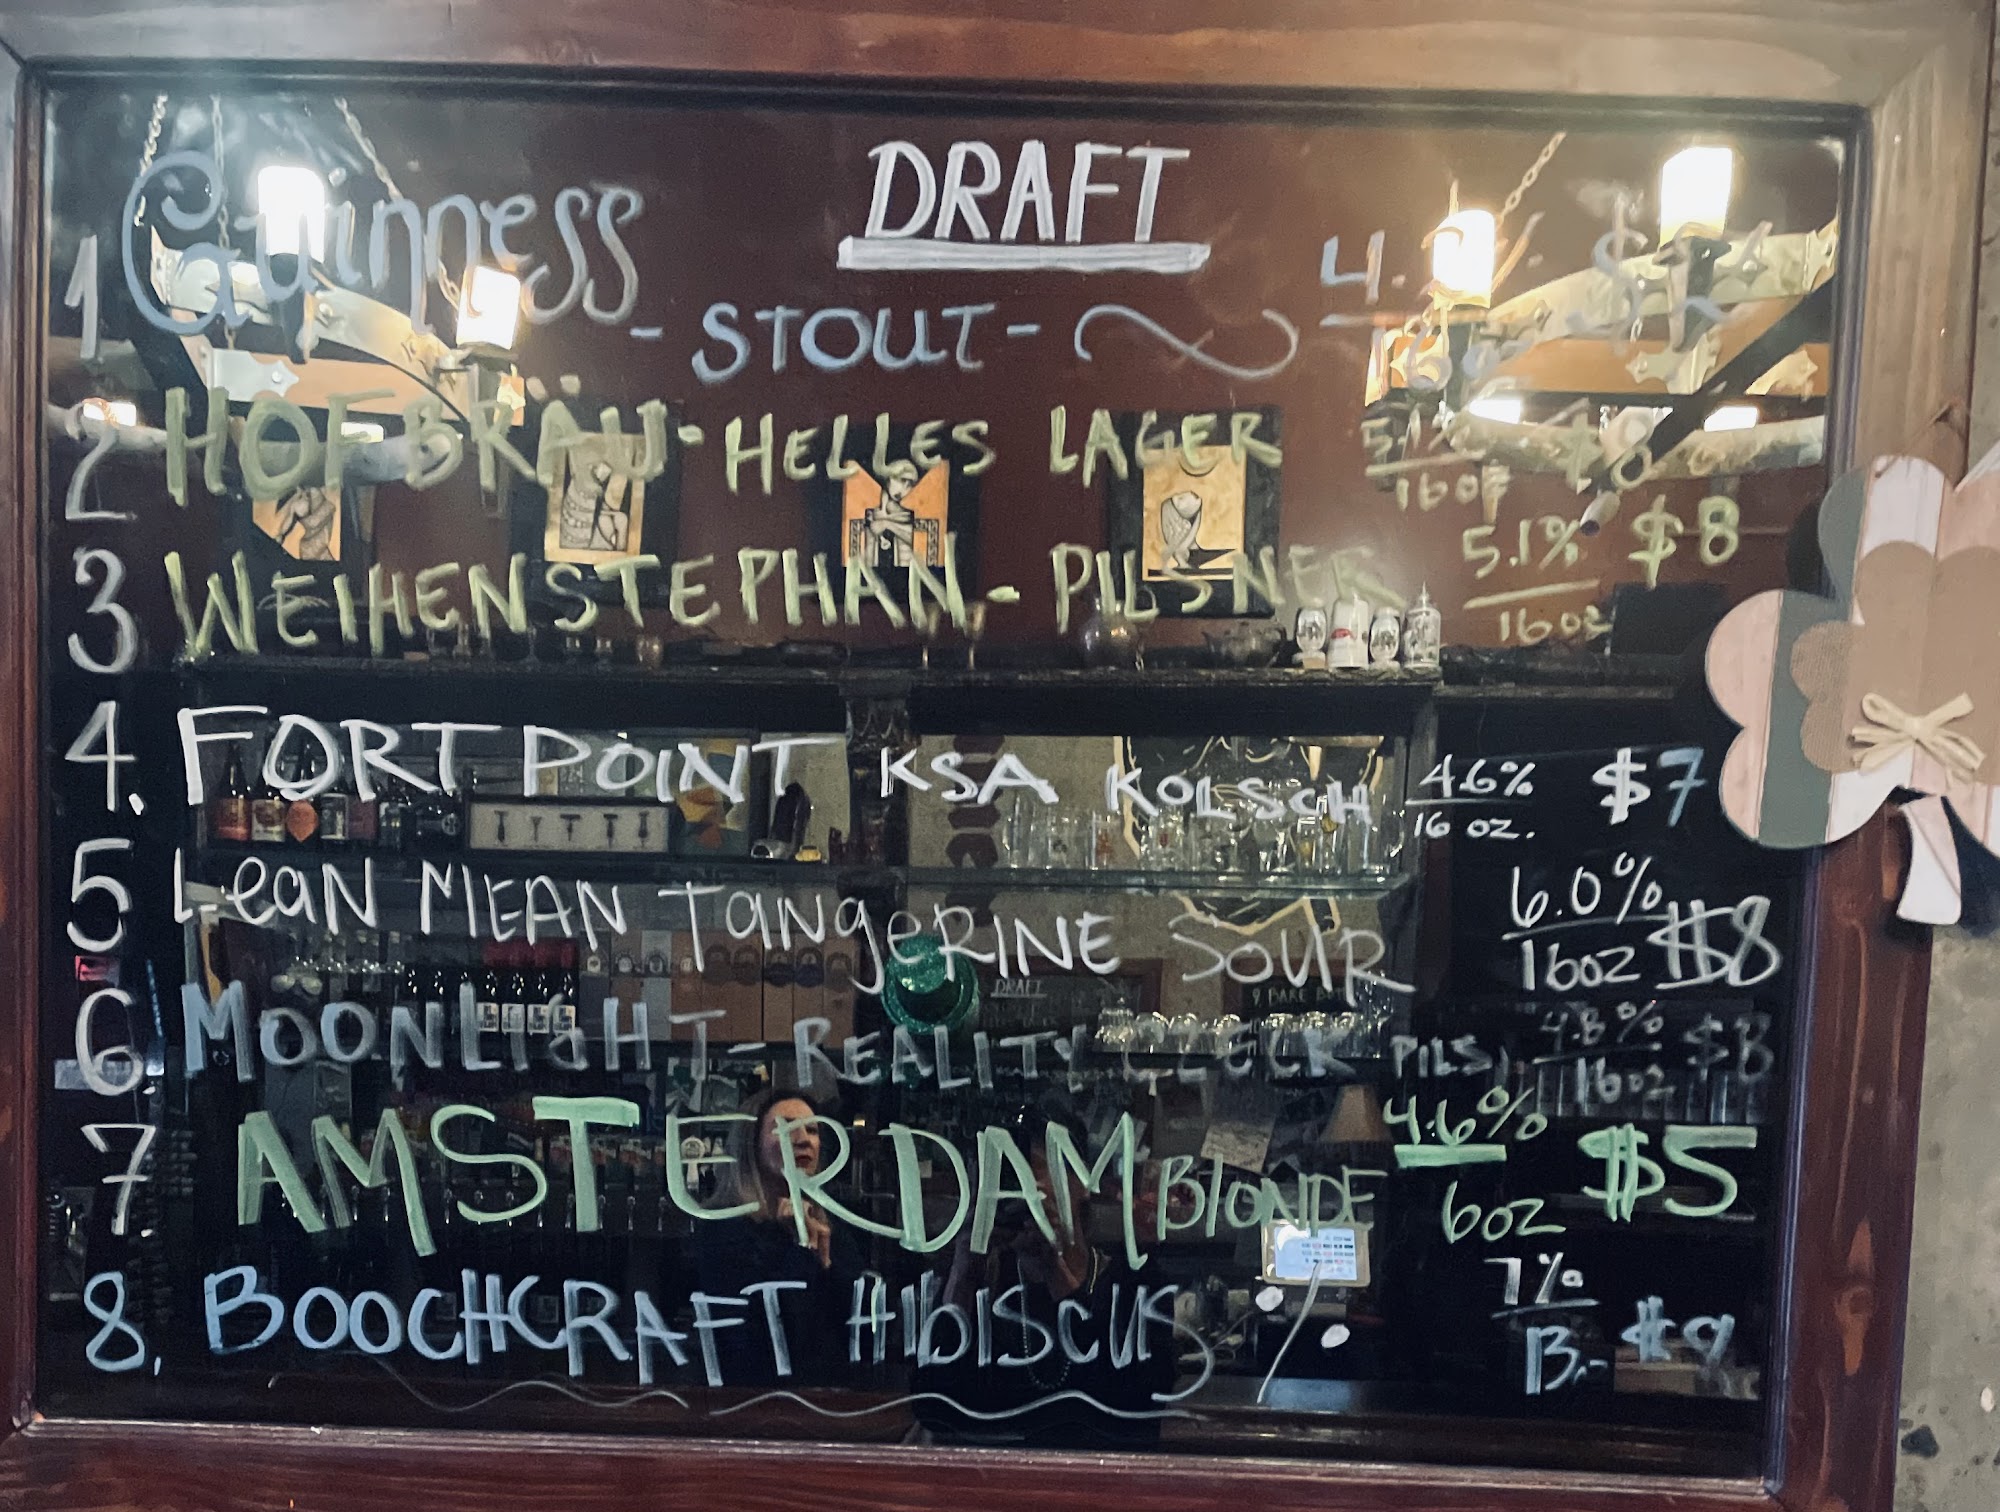 DRAFT
1 Guinness - STOUT -
2 HOFBRÄU - HELLES LAGER 5.1% 16oz $8
3 WEIHENSTEPHAN - PILSNER 5.1% 16oz $8
4. FORT POINT KSA KOLSCH 4.6% 16 oz. $7
5 Lean MEAN TangeRINE SOUR 6.0% 16oz $8
6 MOONLIGHT - REALITY CZECK PILS, 4.8% 16oz $8
7 AMSTERDAM BLONDE 4.6% 6oz $5
8. BOOCHCRAFT HIBISCUS 7% $9
DRAFT